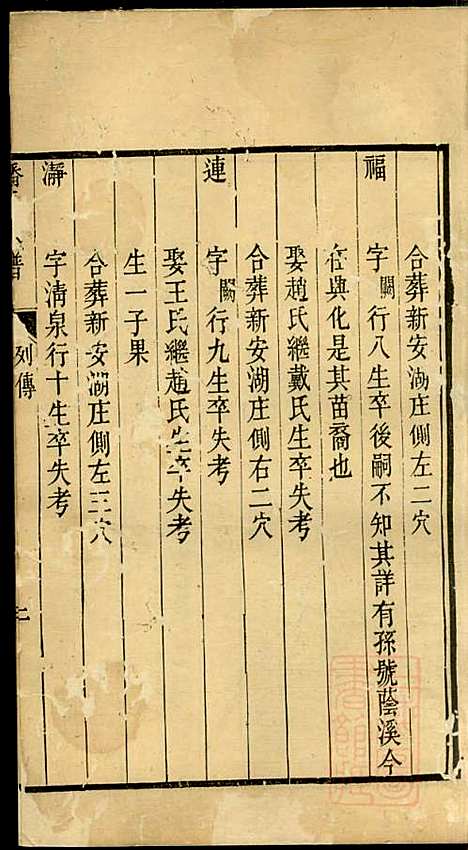 合葬新安湖庄側左二穴
福
字闕行八生卒後嗣不知其詳有孫號蔭溪今
在興化是其苗裔也
娶趙氏繼戴氏生卒失考
合葬新安湖庄側右二穴
連
字闕行九生卒失考
娶王氏繼趙氏生卒失考
生一子果
合葬新安湖庄側左三穴
瀞
字清泉行十生卒失考
譜
列傳
二